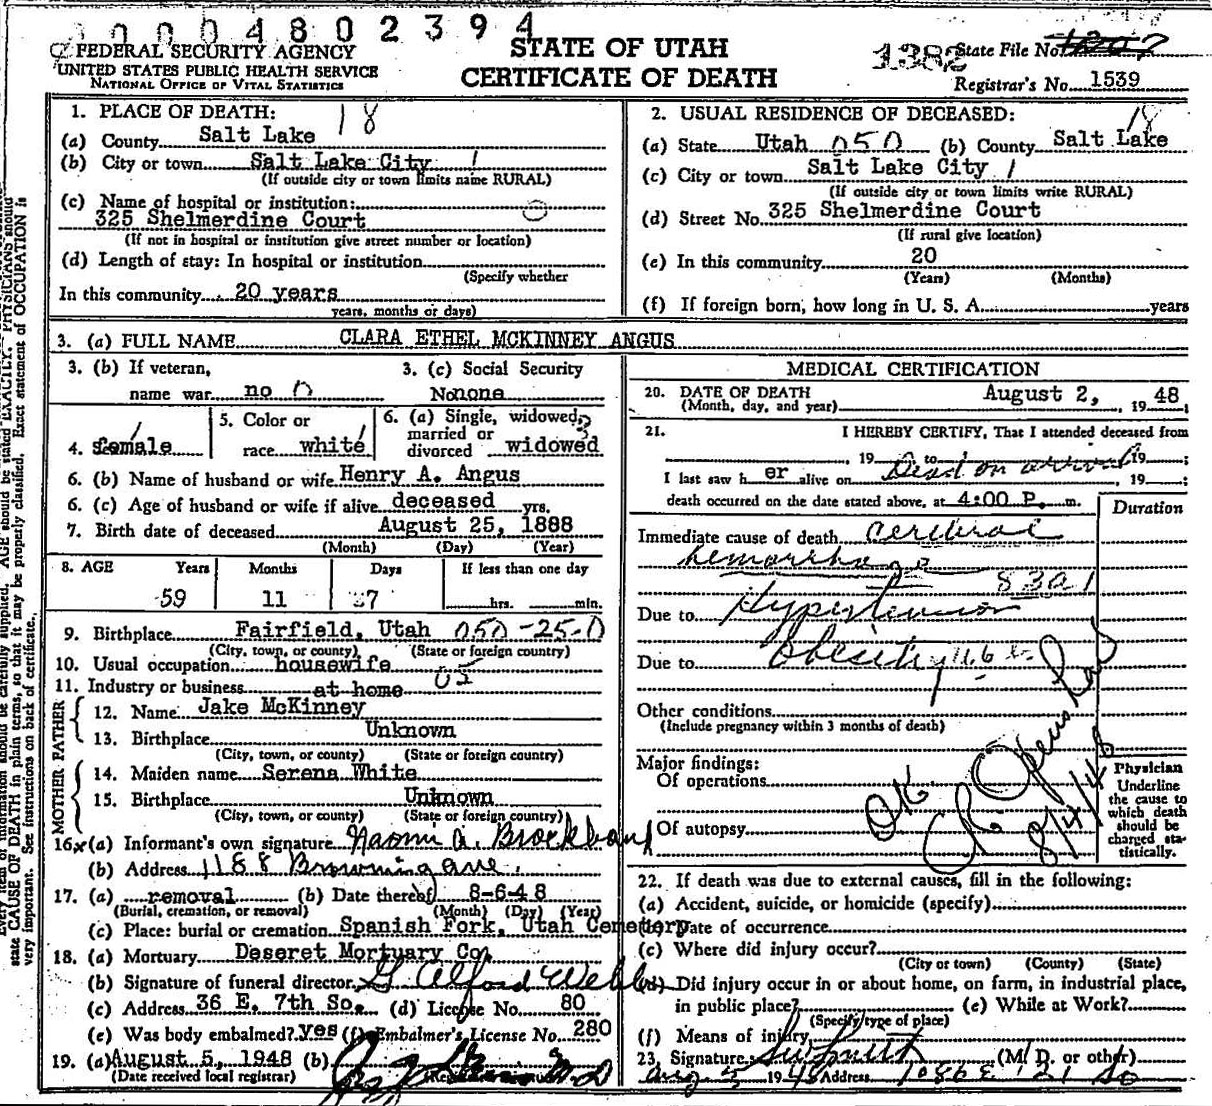 0 0 0 4 8 0 2 3 9 4
FEDERAL SECURITY AGENCY
UNITED STATES PUBLIC HEALTH SERVICE
NATIONAL OFFICE OF VITAL STATISTICS
STATE OF UTAH
CERTIFICATE OF DEATH
1382 State File No. 1207
Registrar's No. 1539
1. PLACE OF DEATH: 18
(a) County Salt Lake
(b) City or town Salt Lake City 1
(If outside city or town limits name RURAL)
(c) Name of hospital or institution:
325 Shelmerdine Court
(If not in hospital or institution give street number or location)
(d) Length of stay: In hospital or institution
(Specify whether
In this community 20 years
years, months or days)
2. USUAL RESIDENCE OF DECEASED: 18
(a) State Utah 050 (b) County Salt Lake
(c) City or town Salt Lake City 1
(If outside city or town limits write RURAL)
(d) Street No. 325 Shelmerdine Court
(If rural give location)
(e) In this community 20
(Years) (Months)
(f) If foreign born, how long in U. S. A. years
3. (a) FULL NAME CLARA ETHEL MCKINNEY ANGUS
3. (b) If veteran,
name war no 0
3. (c) Social Security
No none
4. female
5. Color or
race white
6. (a) Single, widowed,
married or
divorced widowed
6. (b) Name of husband or wife Henry A. Angus
6. (c) Age of husband or wife if alive deceased yrs.
7. Birth date of deceased August 25, 1888
(Month) (Day) (Year)
8. AGE Years Months Days If less than one day
59 11 27 hrs. min.
9. Birthplace Fairfield, Utah 050-25-0
(City, town, or county) (State or foreign country)
10. Usual occupation housewife
11. Industry or business at home 05
FATHER
12. Name Jake McKinney
13. Birthplace Unknown
(City, town, or county) (State or foreign country)
MOTHER
14. Maiden name Serena White
15. Birthplace Unknown
(City, town, or county) (State or foreign country)
16. (a) Informant's own signature Naomi A. Brockbank
(b) Address 1188 Browning ave.
17. (a) removal (b) Date thereof 8-6-48
(Burial, cremation, or removal) (Month) (Day) (Year)
(c) Place: burial or cremation Spanish Fork, Utah Cemetery
18. (a) Mortuary Deseret Mortuary Co.
(b) Signature of funeral director
(c) Address 36 E. 7th So. (d) License No. 80
(e) Was body embalmed? yes (f) Embalmer's License No. 280
19. (a) August 5, 1948 (b)
(Date received local registrar)
MEDICAL CERTIFICATION
20. DATE OF DEATH August 2, 19 48
(Month, day, and year)
21. I HEREBY CERTIFY, That I attended deceased from
, 19 to Dead on arrival 19 ;
I last saw h er alive on , 19 ;
death occurred on the date stated above, at 4:00 P. m.
Duration
Immediate cause of death Cerebral
hemorrhage
83a1
Due to Hypertension
Due to Obesity
Other conditions
(Include pregnancy within 3 months of death)
Major findings:
Of operations
Of autopsy
OK
8/4/48
Physician
Underline
the cause to
which death
should be
charged sta-
tistically.
22. If death was due to external causes, fill in the following:
(a) Accident, suicide, or homicide (specify)
(b) Date of occurrence
(c) Where did injury occur?
(City or town) (County) (State)
(d) Did injury occur in or about home, on farm, in industrial place,
in public place? (e) While at Work?
(Specify type of place)
(f) Means of injury
23. Signature (M. D. or other)
Aug. 5 1948 Address